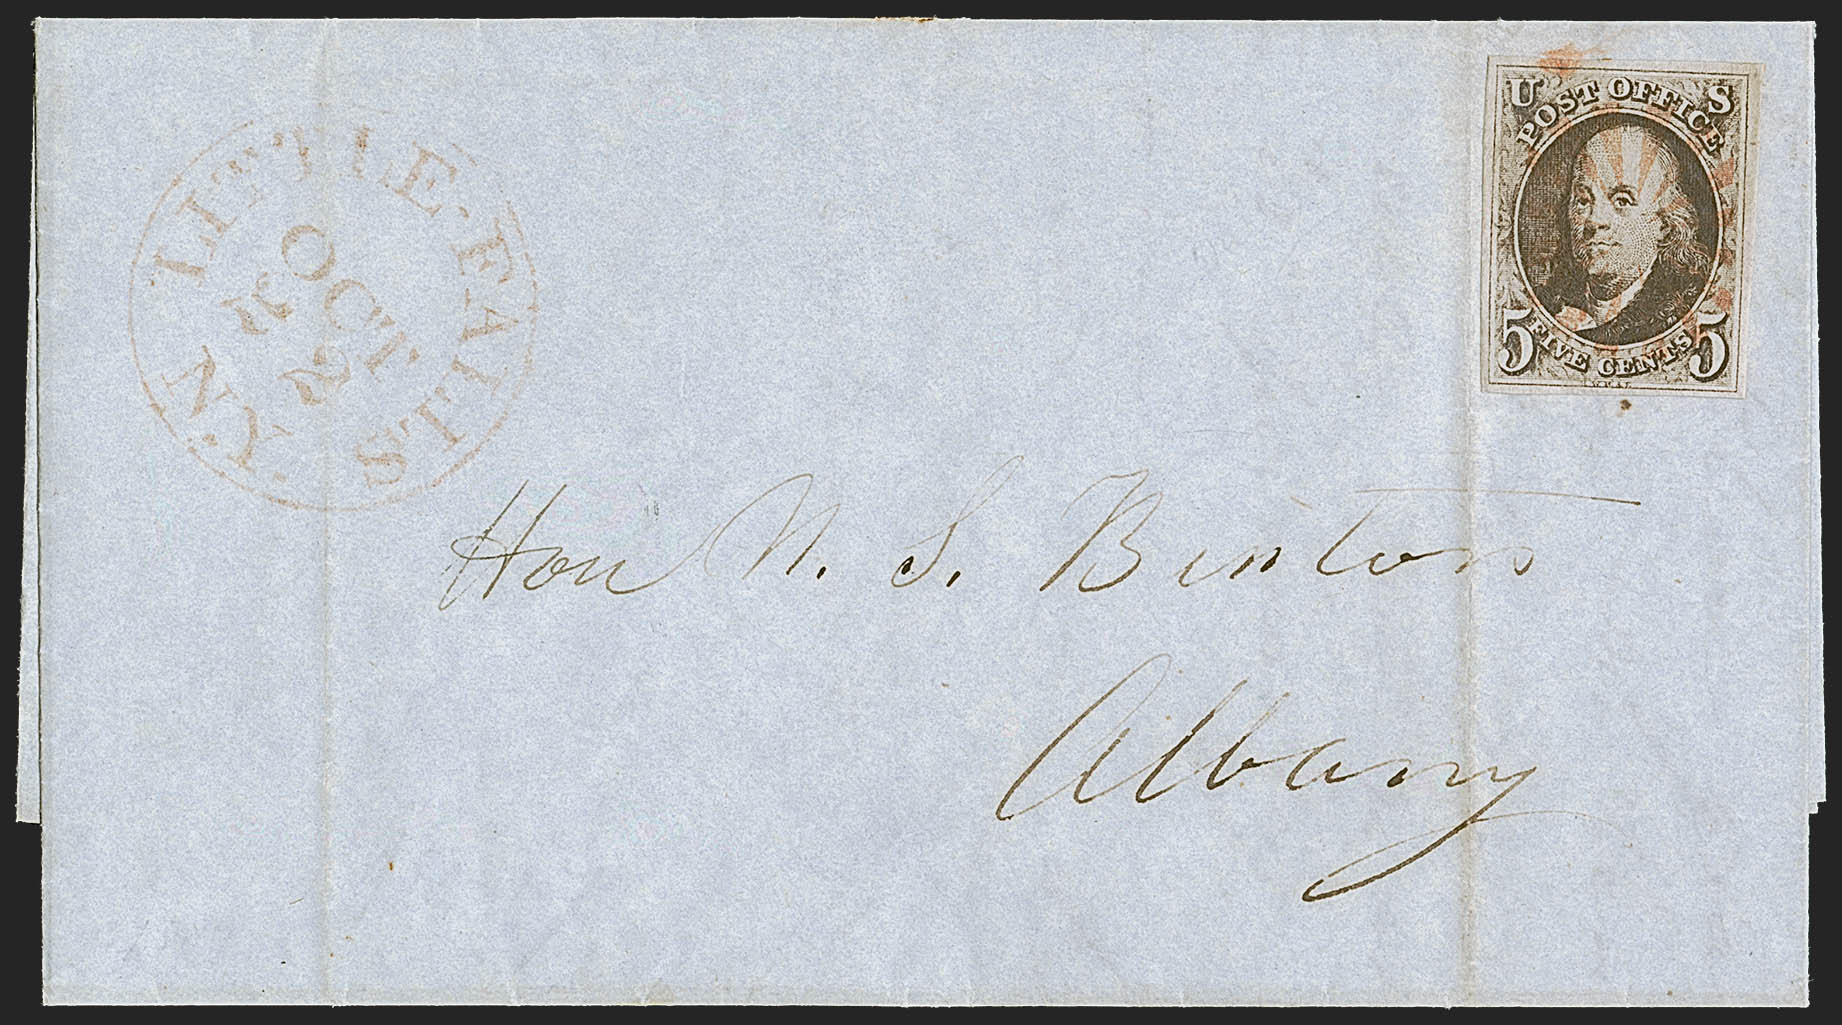 LITTLE·FALLS·
N.Y.
OCT
2
U S
POST OFFICE
5 FIVE CENTS 5
Hon N. S. Benton
Albany